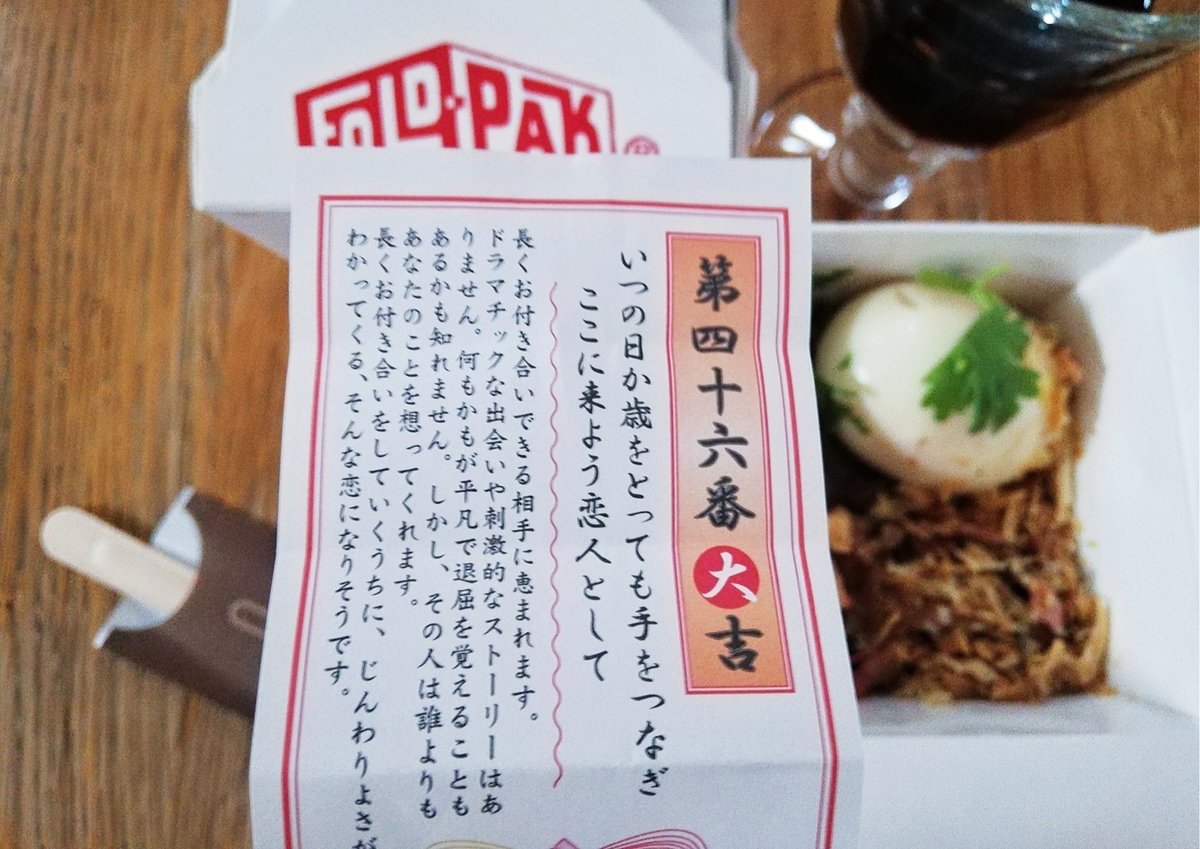 FOLD-PAK®
第四十六番 大吉
いつの日か歳をとっても手をつなぎ
ここに来よう恋人として
長くお付き合いできる相手に恵まれます。
ドラマチックな出会いや刺激的なストーリーはあ
りません。何もかもが平凡で退屈を覚えることも
あるかも知れません。しかし、その人は誰よりも
あなたのことを想ってくれます。
長くお付き合いをしていくうちに、じんわりよさが
わかってくる、そんな恋になりそうです。